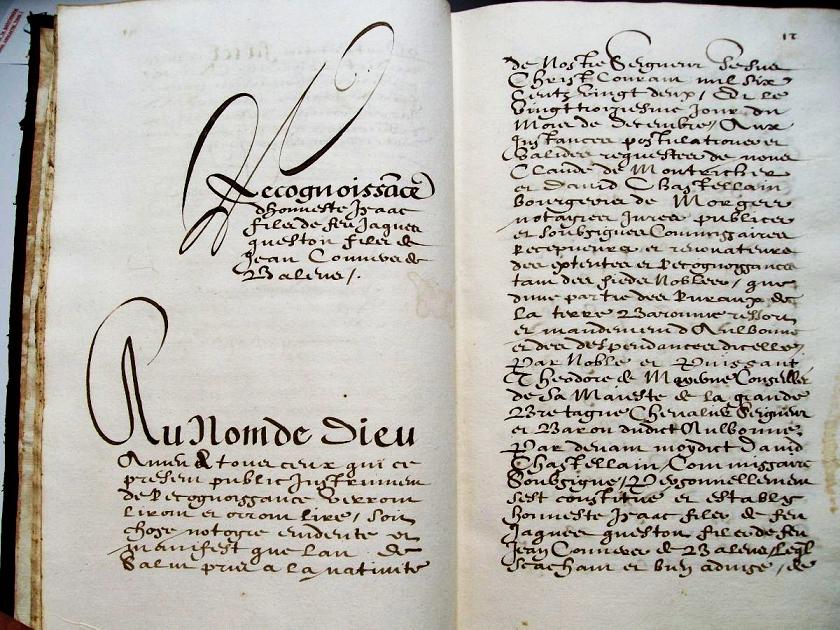 Recognoissance
dhonneste Isaac
filz de feu Jaques
queston filz de
Jean Conners de
Baleus /.
Au Nom de Dieu
Amen & tous ceux qui ce
present public Instrument
de Recognoissance verront
liront et orront lire / Soit
chose notoyre evidente et
manifest que lan de
Salut pris a la nativite
12
de Nostre Seigneur Jesus
Christ Courant mil six
Centz vingt deux / Et le
vingt troisiesme Jour du
Mois de decembre / Aux
Instances postulationes et
valides requestes de nous
Claude de Montricher
et david Chastellain
bourgeois de Morges
notayres Jurez publicez
et soubsignez Commissaires
Recepveurs et renovateurs
des extentes et Recognoissances
tam des fiedz Nobles / que
dune partie des Ruraux de
la terre Baronnie ressort
et mandement d Aulbonne
et des despendances dicelles
Par Noble et Puissant
Theodore de Mayerne Conseiller
de sa Majeste de la grande
Bretagne Chevalier Seigneur
et Baron dudict Aulbonne
Par devant moydict David
Chastellain / Commissaire
Soubsigne / Personnellement
sest constitue et estably
honneste Isaac filz de feu
Jaques queston filz de feu
Jean Conners de Baleus / Leql
scachant et bien advise / de